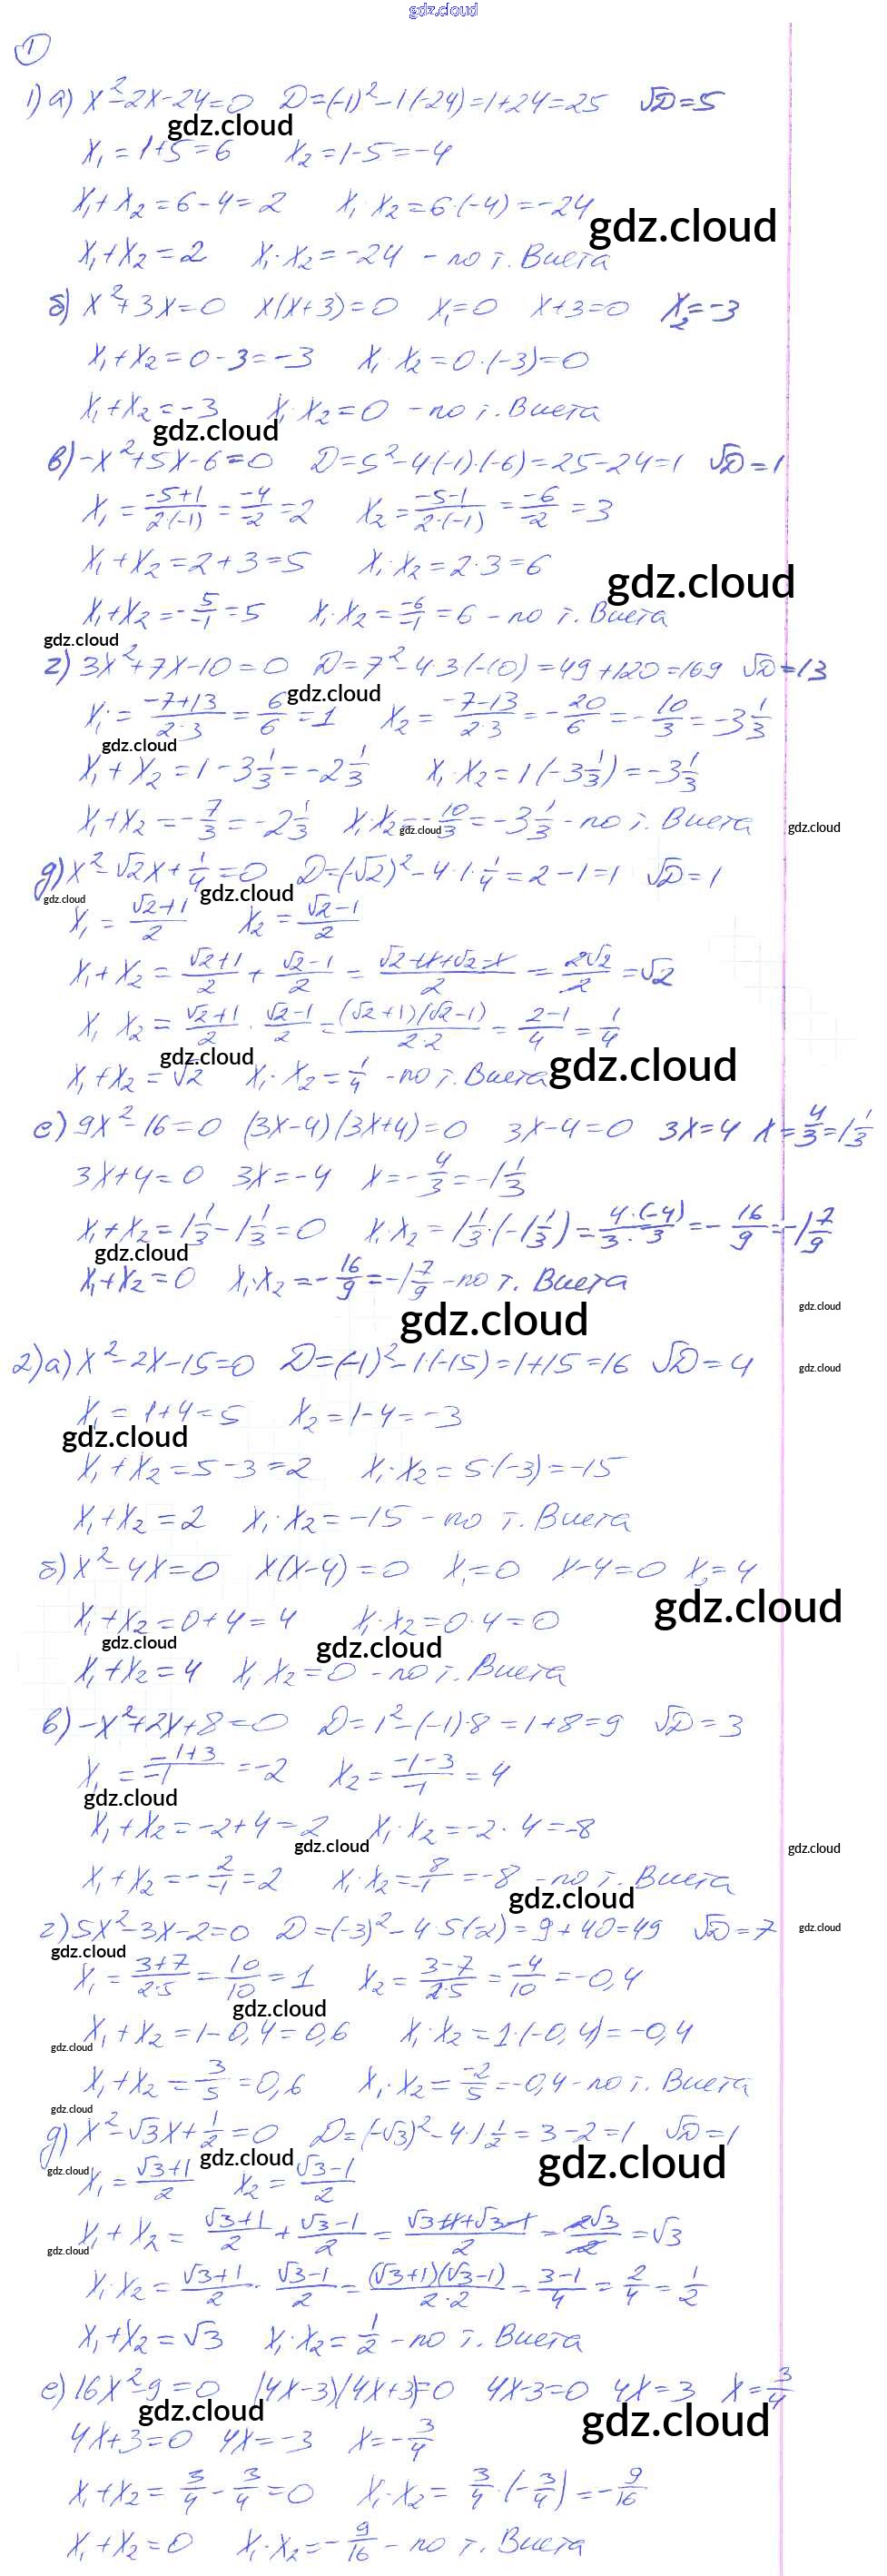 gdz.cloud
1
1) а) x²-2x-24=0 D=(-1)²-1(-24)=1+24=25 √D=5
gdz.cloud
x₁=1+5=6 x₂=1-5=-4
x₁+x₂=6-4=2 x₁ x₂=6·(-4)=-24
gdz.cloud
x₁+x₂=2 x₁·x₂=-24 - по т. Виета
б) x²+3x=0 x(x+3)=0 x₁=0 x+3=0 x₂=-3
x₁+x₂=0-3=-3 x₁ x₂=0·(-3)=0
x₁+x₂=-3 x₁ x₂=0 - по т. Виета
gdz.cloud
в) -x²+5x-6=0 D=5²-4(-1)·(-6)=25-24=1 √D=1
x₁=(-5+1)/(2·(-1))=(-4)/(-2)=2 x₂=(-5-1)/(2·(-1))=(-6)/(-2)=3
x₁+x₂=2+3=5 x₁·x₂=2·3=6
gdz.cloud
x₁+x₂=-5/(-1)=5 x₁·x₂=(-6)/(-1)=6 - по т. Виета
gdz.cloud
г) 3x²+7x-10=0 D=7²-4·3(-10)=49+120=169 √D=13
gdz.cloud
x₁=(-7+13)/(2·3)=6/6=1 x₂=(-7-13)/(2·3)=-20/6=-10/3=-3 1/3
gdz.cloud
x₁+x₂=1-3 1/3=-2 1/3 x₁·x₂=1(-3 1/3)=-3 1/3
x₁+x₂=-7/3=-2 1/3 x₁·x₂=-10/3=-3 1/3 - по т. Виета
gdz.cloud gdz.cloud
д) x²-√2x+1/4=0 D=(-√2)²-4·1·1/4=2-1=1 √D=1
gdz.cloud gdz.cloud
x₁=(√2+1)/2 x₂=(√2-1)/2
x₁+x₂=(√2+1)/2+(√2-1)/2=(√2+1+√2-1)/2=2√2/2=√2
x₁ x₂=(√2+1)/2·(√2-1)/2=((√2+1)(√2-1))/(2·2)=(2-1)/4=1/4
gdz.cloud gdz.cloud
x₁+x₂=√2 x₁·x₂=1/4 - по т. Виета
е) 9x²-16=0 (3x-4)(3x+4)=0 3x-4=0 3x=4 x=4/3=1 1/3
3x+4=0 3x=-4 x=-4/3=-1 1/3
x₁+x₂=1 1/3-1 1/3=0 x₁·x₂=1 1/3·(-1 1/3)=(4·(-4))/(3·3)=-16/9=-1 7/9
gdz.cloud
x₁+x₂=0 x₁·x₂=-16/9=-1 7/9 - по т. Виета
gdz.cloud gdz.cloud
2) а) x²-2x-15=0 D=(-1)²-1(-15)=1+15=16 √D=4
gdz.cloud
x₁=1+4=5 x₂=1-4=-3
gdz.cloud
x₁+x₂=5-3=2 x₁·x₂=5·(-3)=-15
x₁+x₂=2 x₁·x₂=-15 - по т. Виета
б) x²-4x=0 x(x-4)=0 x₁=0 x-4=0 x₂=4
gdz.cloud
x₁+x₂=0+4=4 x₁·x₂=0·4=0
gdz.cloud gdz.cloud
x₁+x₂=4 x₁ x₂=0 - по т. Виета
в) -x²+2x+8=0 D=1²-(-1)·8=1+8=9 √D=3
x₁=(-1+3)/(-1)=-2 x₂=(-1-3)/(-1)=4
gdz.cloud
x₁+x₂=-2+4=2 x₁·x₂=-2·4=-8
gdz.cloud gdz.cloud
x₁+x₂=-2/(-1)=2 x₁·x₂=8/(-1)=-8 - по т. Виета
gdz.cloud
г) 5x²-3x-2=0 D=(-3)²-4·5(-2)=9+40=49 √D=7
gdz.cloud gdz.cloud
x₁=(3+7)/(2·5)=10/10=1 x₂=(3-7)/(2·5)=(-4)/10=-0,4
gdz.cloud
x₁+x₂=1-0,4=0,6 x₁·x₂=1·(-0,4)=-0,4
gdz.cloud
x₁+x₂=3/5=0,6 x₁·x₂=(-2)/5=-0,4 - по т. Виета
gdz.cloud
д) x²-√3x+1/2=0 D=(-√3)²-4·1·1/2=3-2=1 √D=1
gdz.cloud gdz.cloud gdz.cloud
x₁=(√3+1)/2 x₂=(√3-1)/2
x₁+x₂=(√3+1)/2+(√3-1)/2=(√3+1+√3-1)/2=2√3/2=√3
gdz.cloud
x₁·x₂=(√3+1)/2·(√3-1)/2=((√3+1)(√3-1))/(2·2)=(3-1)/4=2/4=1/2
x₁+x₂=√3 x₁·x₂=1/2 - по т. Виета
е) 16x²-9=0 (4x-3)(4x+3)=0 4x-3=0 4x=3 x=3/4
gdz.cloud gdz.cloud
4x+3=0 4x=-3 x=-3/4
x₁+x₂=3/4-3/4=0 x₁·x₂=3/4·(-3/4)=-9/16
x₁+x₂=0 x₁·x₂=-9/16 - по т. Виета